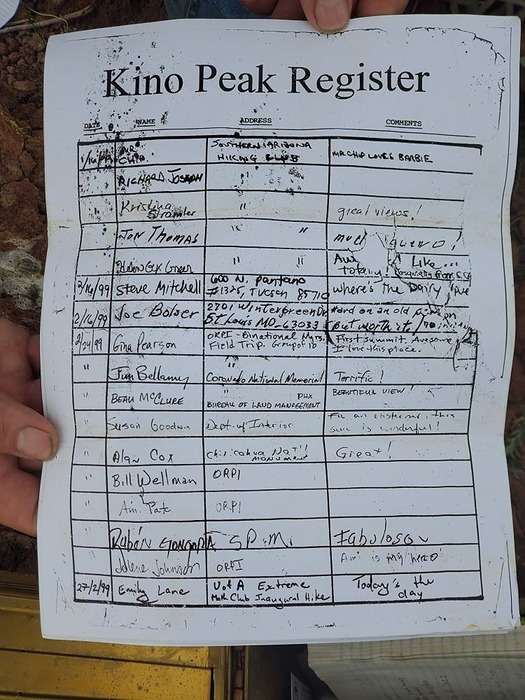 Kino Peak Register
DATE NAME ADDRESS COMMENTS
MR CHIP SOUTHERN ARIZONA HIKING CLUB MR CHIP LOVES BARBIE
" RICHARD JOSEPH "
" Kristina Strandler " great views!
" JON THOMAS " "
2/16/99 Steve Mitchell 600 N. pantano #1325, Tucson 85710 where's the Dairy
2/16/99 Joe Bolser 2701 Wintergreen Dr St Louis MO-63033 Hard on an old But worth it
2/24/99 Gina Pearson ORPI - Binational Mgrs. Field Trip. First Summit. Awesome I love this place.
" Jim Bellamy Coronado National Memorial Terrific!
" BEAU MCCLURE " PHX BUREAU OF LAND MANAGEMENT BEAUTIFUL VIEW!
" Susan Goodwin Dept. of Interior For an easterner, this sure is wonderful!
" Alan Cox Chiricahua NAT'L MONUMENT Great!
" Bill Wellman ORPI
" Ami Pate ORPI
Rubén S.P.M. Fabuloso
" Jolene Johnson ORPI Ami is my hero
27/2/99 Emily Lane U of A Extreme Math Club Inaugural Hike Today's the day